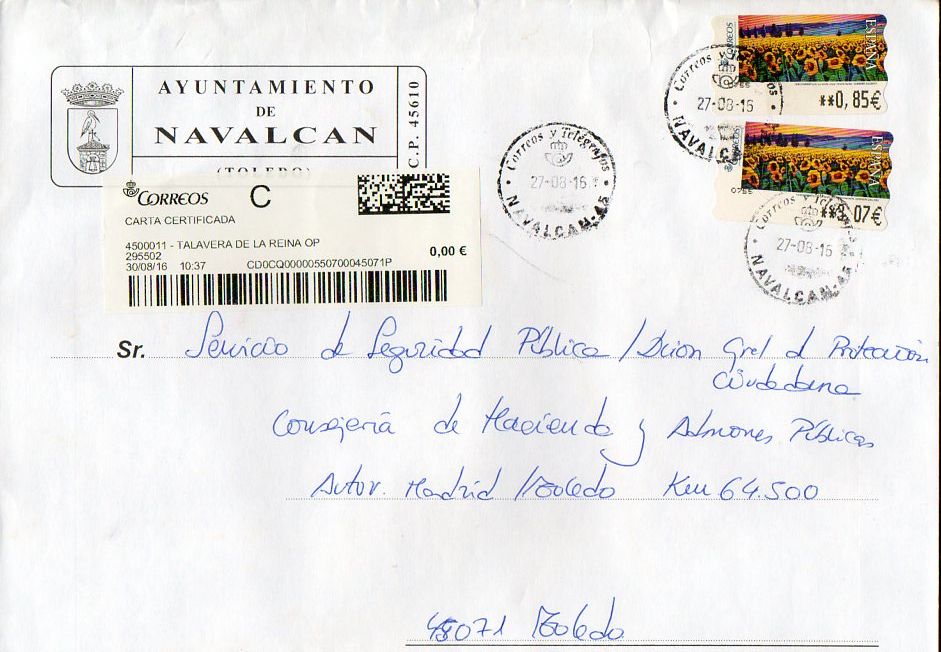 AYUNTAMIENTO
DE
NAVALCAN
(TOLEDO)
C.P. 45610
CORREOS
C
CARTA CERTIFICADA
4500011 - TALAVERA DE LA REINA OP
295502
0,00 €
30/08/16 10:37 CD0CQ00000550700045071P
Correos y Telégrafos
27-08-16
NAVALCAN-45
CORREOS
ESPAÑA
**0,85€
Correos y
27-08-16
NAVALCAN
CORREOS
ESPAÑA
**3,07€
Correos y Telégrafos
27-08-16
NAVALCAN-45
Sr. Servicio de Seguridad Pública / Dcion Gral d Protección
Ciudadana
Consejería de Hacienda y Admones Públicas
Autov. Madrid / Toledo Km 64.500
45071 Toledo